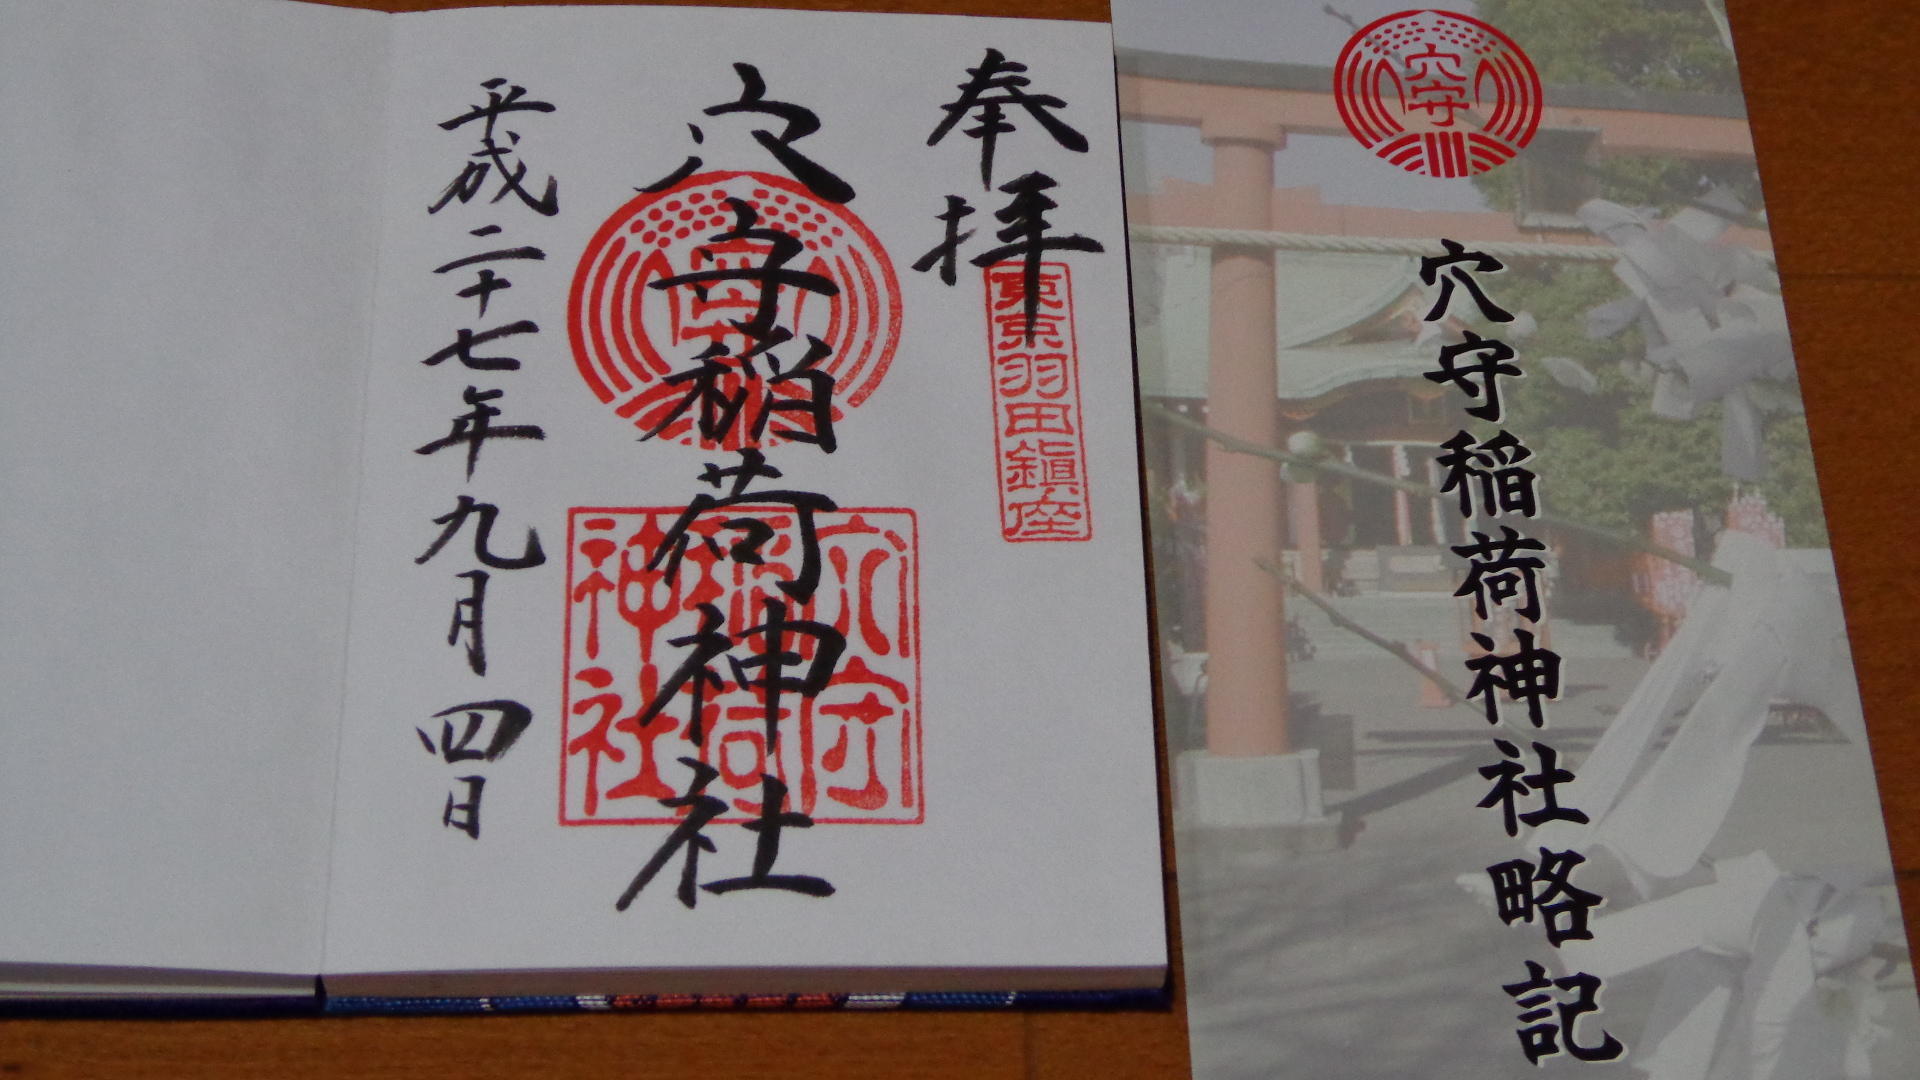 奉拝
東京羽田鎮座
穴守稲荷神社
穴守
穴守稲荷神社
平成二十七年九月四日
穴守
穴守稲荷神社略記